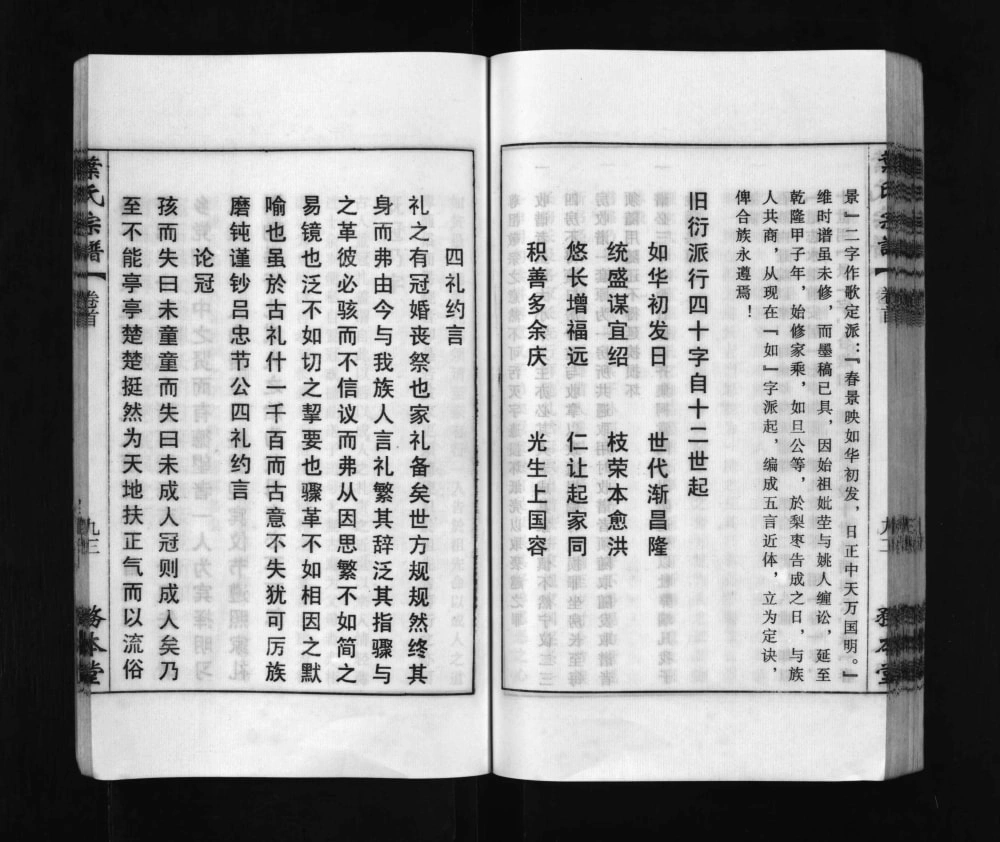 景』二字作歌定派：『春景映如华初发，日正中天万国明。』
维时谱虽未修，而墨稿已具，因始祖妣茔与姚人缠讼，延至
乾隆甲子年，始修家乘，如旦公等，於梨枣告成之日，与族
人共商，从现在『如』字派起，编成五言近体，立为定诀，
俾合族永遵焉！
旧衍派行四十字自十二世起
如华初发日 世代渐昌隆
统盛谋宜绍 枝荣本愈洪
悠长增福远 仁让起家同
积善多余庆 光生上国容
葉氏宗譜 卷首 九三 務本堂
四礼约言
礼之有冠婚丧祭也家礼备矣世方规规然终其
身而弗由今与我族人言礼繁其辞泛其指骤与
之革彼必骇而不信议而弗从因思繁不如简之
易镜也泛不如切之挈要也骤革不如相因之默
喻也虽於古礼什一千百而古意不失犹可厉族
磨钝谨钞吕忠节公四礼约言
论冠
孩而失曰未童童而失曰未成人冠则成人矣乃
至不能亭亭楚楚挺然为天地扶正气而以流俗